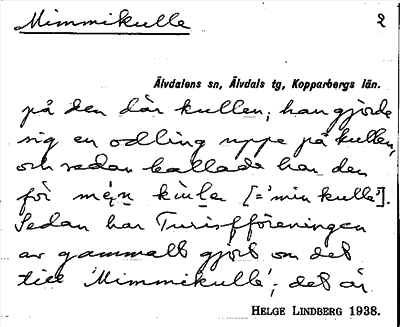 Mimmikulle 2
Älvdalens sn, Älvdals tg, Kopparbergs län.
på den där kullen; han gjorde
sig en odling uppe på kullen,
och sedan kallade han den
för mén kùle [='min kulle'].
Sedan har Turistföreningen
av gammalt gjort om det
till 'Mimmikulle'; det är
HELGE LINDBERG 1938.